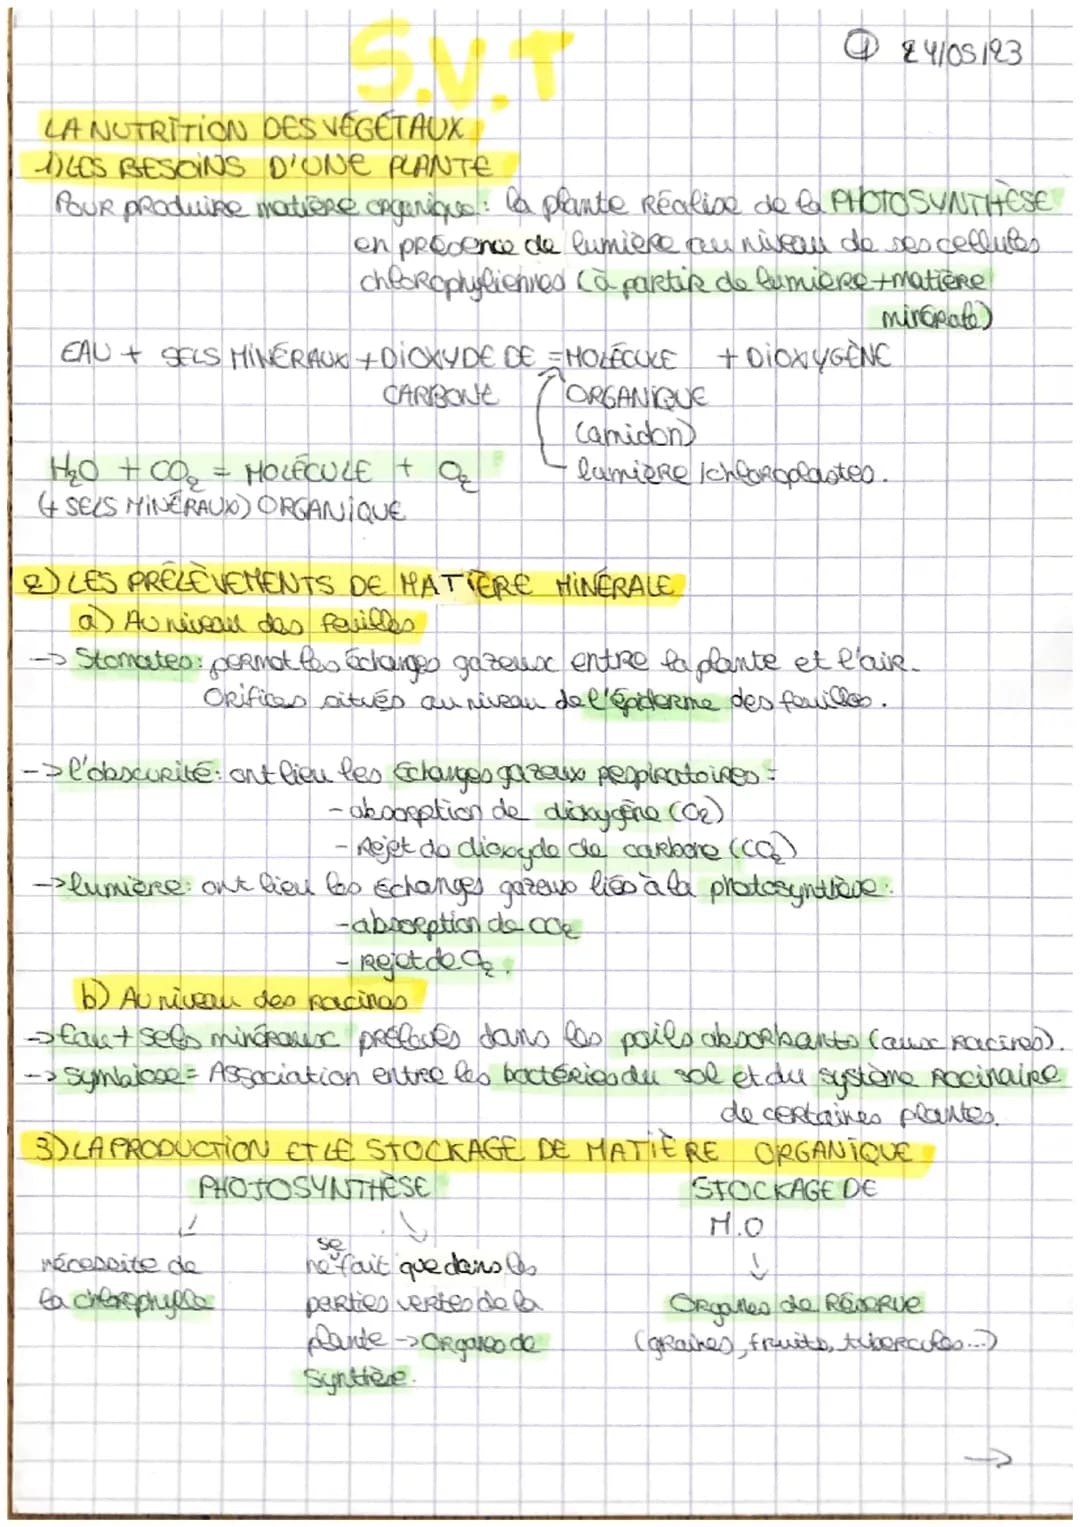 S.V.T
① 24/05/23
LA NUTRITION DES VÉGÉTAUX
1) LES BESOINS D'UNE PLANTE
Pour produire matière organique : la plante réalise de la PHOTOSYNTHÈSE
en présence de lumière au niveau de ses cellules
chlorophyliennes (à partir de lumière + matière
minérale)
EAU + SELS MINÉRAUX + DIOXYDE DE = MOLÉCULE + DIOXYGÈNE
CARBONE ORGANIQUE
(amidon)
lumière / chloroplastes.
H₂O + CO₂ = MOLÉCULE + O₂
(+ SELS MINÉRAUX) ORGANIQUE
2) LES PRÉLÈVEMENTS DE MATIÈRE MINÉRALE
a) Au niveau des feuilles
-> Stomates : permet les échanges gazeux entre la plante et l'air.
Orifices situés au niveau de l'épiderme des feuilles.
-> l'obscurité : ont lieu les échanges gazeux respiratoires :
- absorption de dioxygène (O₂)
- Rejet de dioxyde de carbone (CO₂)
-> lumière : ont lieu les échanges gazeux liés à la photosynthèse :
- absorption de CO₂
- Rejet de O₂.
b) Au niveau des racines
-> Eau + sels minéraux prélevés dans les poils absorbants (aux racines).
-> Symbiose = Association entre les bactéries du sol et du système racinaire
de certaines plantes.
3) LA PRODUCTION ET LE STOCKAGE DE MATIÈRE ORGANIQUE
PHOTOSYNTHÈSE STOCKAGE DE
M.O
nécessite de
la chlorophylle
se
ne fait que dans les
parties vertes de la
plante -> Organes de
synthèse.
Organes de RÉSERVE
(graines, fruits, tubercules...)
->